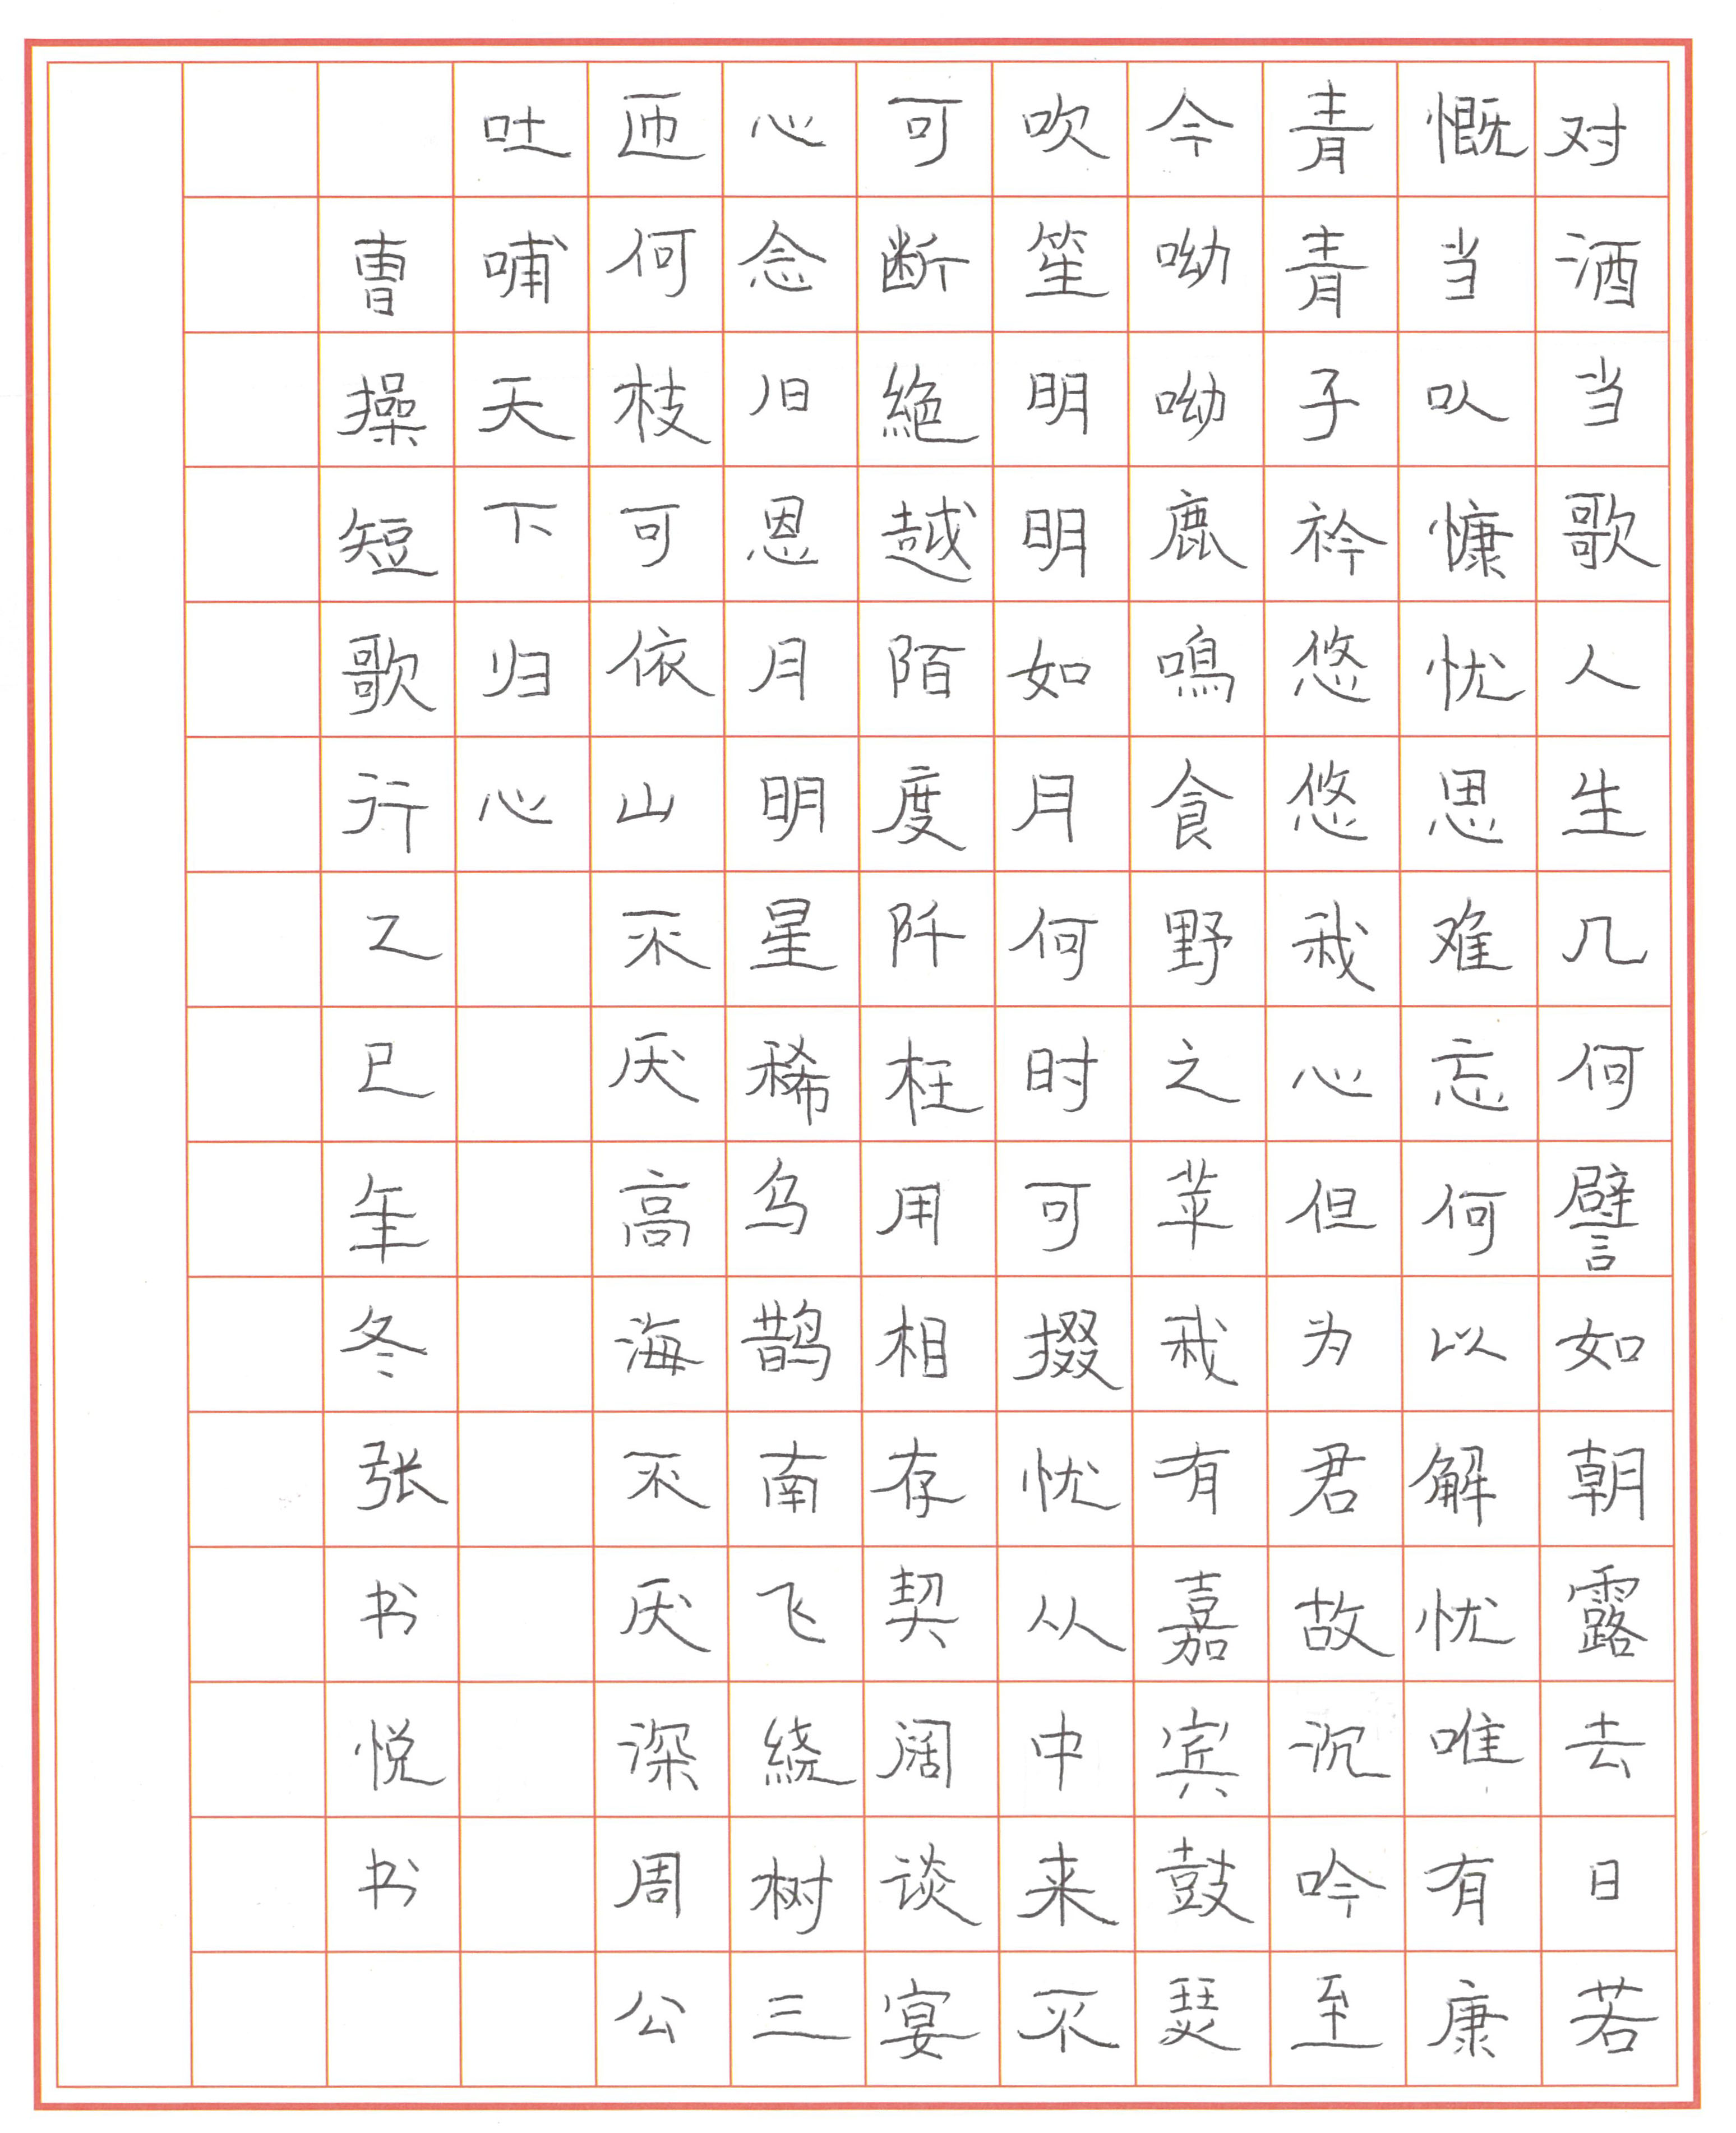 对酒当歌人生几何譬如朝露去日若
慨当以慷忧思难忘何以解忧唯有康
青青子衿悠悠我心但为君故沉吟至
今呦呦鹿鳴食野之苹我有嘉宾鼓瑟
吹笙明明如月何时可掇忧从中来不
可断絶越陌度阡枉用相存契阔谈宴
心念旧恩月明星稀乌鹊南飞绕树三
匝何枝可依山不厌高海不厌深周公
吐哺天下归心
曹操短歌行乙巳年冬张书悦书